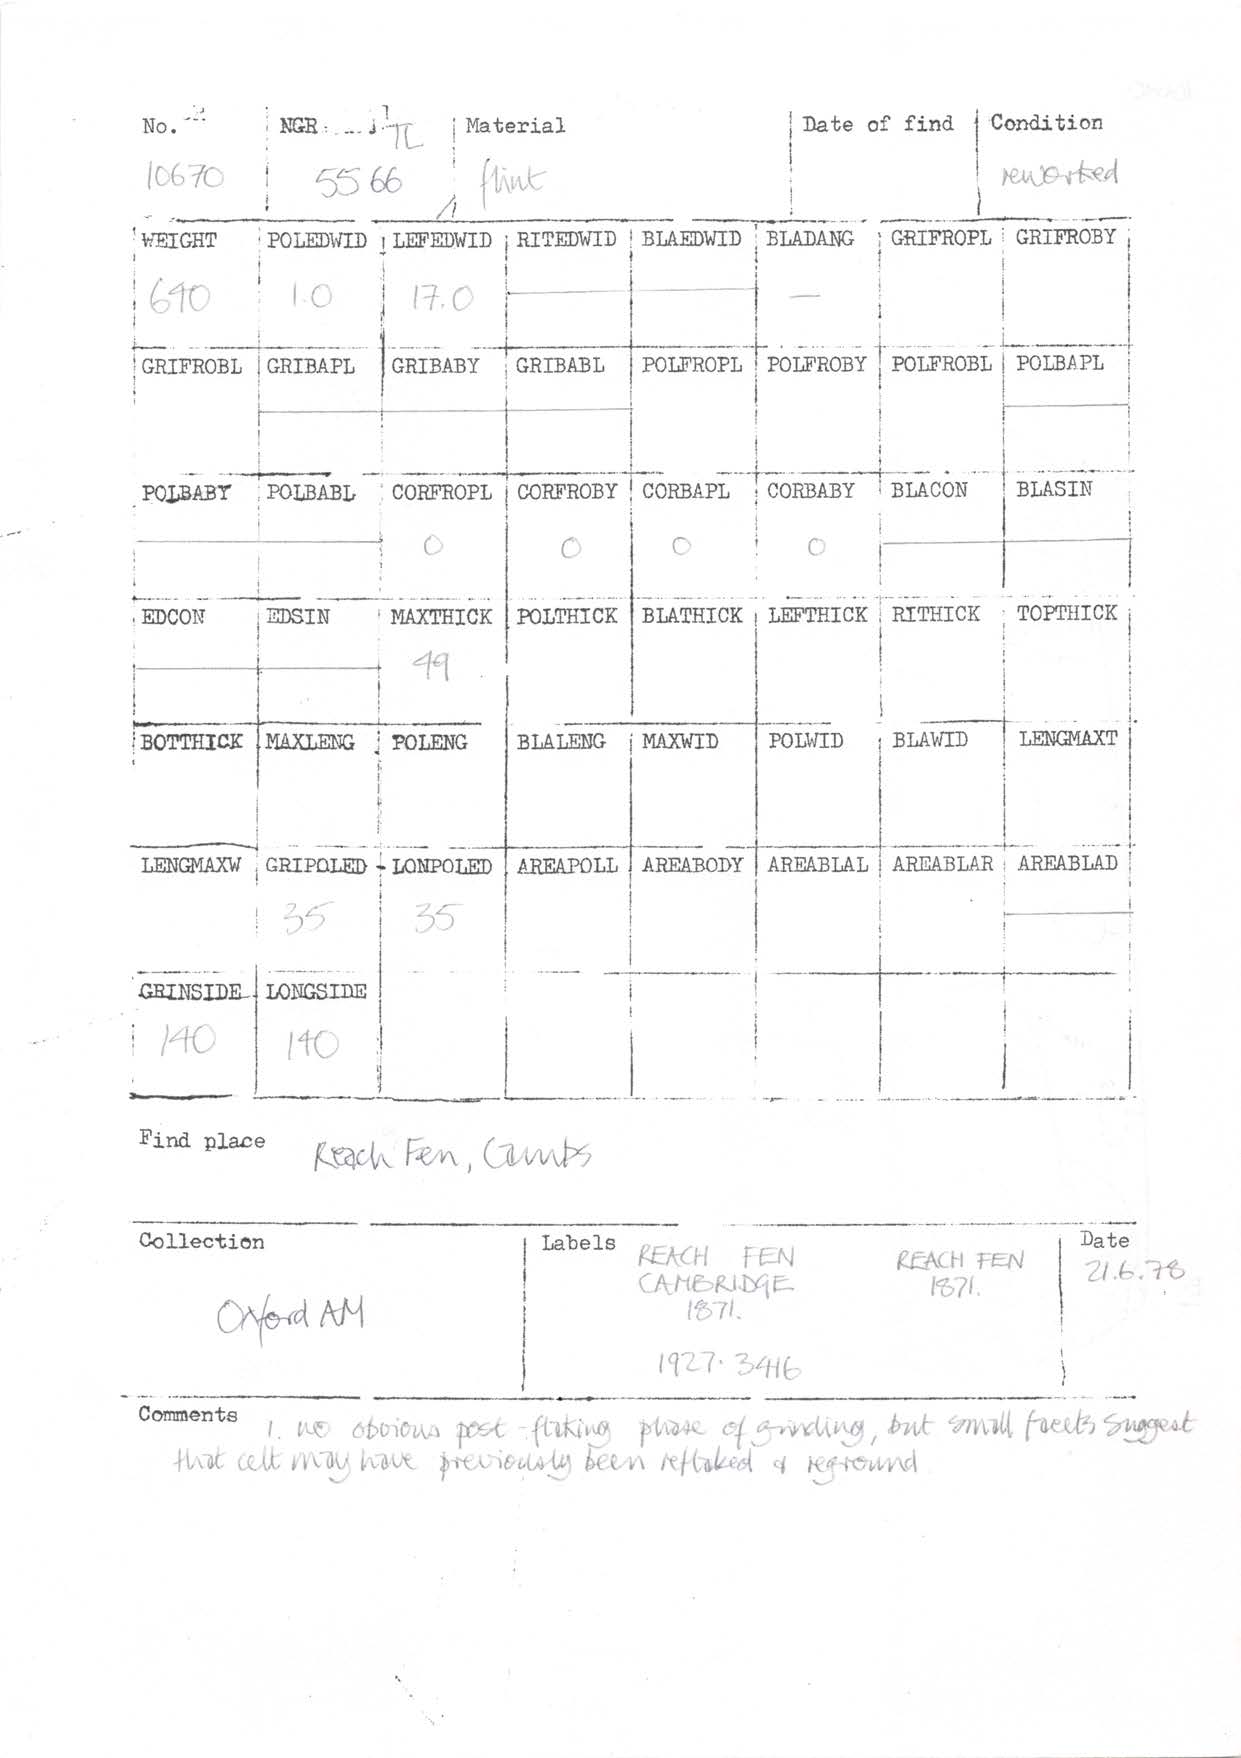 No. NGR TL Material Date of find Condition
10670 55 66 flint reworked
WEIGHT POLEDWID LEFEDWID RITEDWID BLAEDWID BLADANG GRIFROPL GRIFROBY
640 1.0 17.0 —
GRIFROBL GRIBAPL GRIBABY GRIBABL POLFROPL POLFROBY POLFROBL POLBAPL
POLBABY POLBABL CORFROPL CORFROBY CORBAPL CORBABY BLACON BLASIN
0 0 0 0
EDCON EDSIN MAXTHICK POLTHICK BLATHICK LEFTHICK RITHICK TOPTHICK
49
BOTTHICK MAXLENG POLENG BLALENG MAXWID POLWID BLAWID LENGMAXT
LENGMAXW GRIPOLED LONPOLED AREAPOLL AREABODY AREABLAL AREABLAR AREABLAD
35 35
GRINSIDE LONGSIDE
140 140
Find place Reach Fen, Cambs
Collection Labels Date
REACH FEN REACH FEN 21.6.78
CAMBRIDGE 1871.
1871.
Oxford AM
1927.3416
Comments 1. no obvious post-flaking phase of grinding, but small facets suggest
that celt may have previously been reflaked & reground